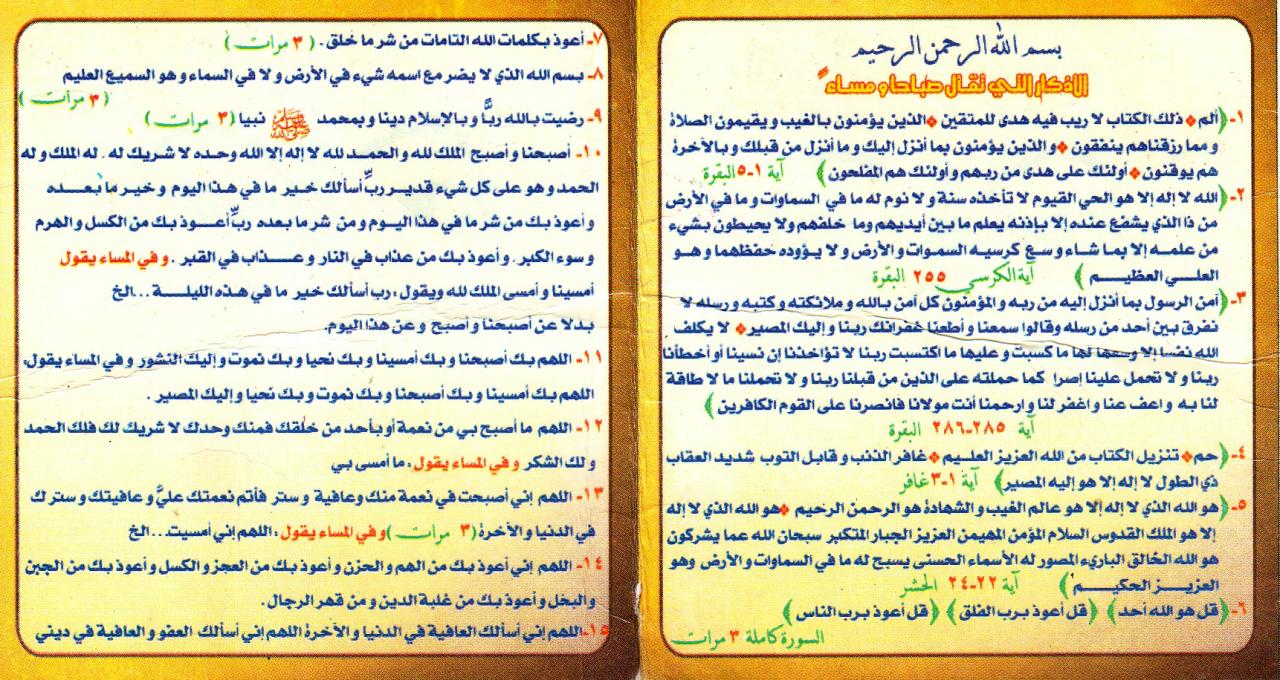 بسم الله الرحمن الرحيم
الاذكار التي تقال صباحا و مساءً
١- ﴿ألم * ذلك الكتاب لا ريب فيه هدى للمتقين * الذين يؤمنون بالغيب و يقيمون الصلاة
و مما رزقناهم ينفقون * و الذين يؤمنون بما أنزل إليك و ما أنزل من قبلك و بالآخرة
هم يوقنون * أولئك على هدى من ربهم و أولئك هم المفلحون﴾ آية ١-٥ البقرة
٢- ﴿الله لا إله إلا هو الحي القيوم لا تأخذه سنة و لا نوم له ما في السماوات و ما في الأرض
من ذا الذي يشفع عنده إلا بإذنه يعلم ما بين أيديهم وما خلفهم ولا يحيطون بشيء
من علمه إلا بما شاء و سع كرسيه السموات و الأرض و لا يؤوده حفظهما و هو
العلي العظيم﴾ آية الكرسي ٢٥٥ البقرة
٣- ﴿آمن الرسول بما أنزل إليه من ربه و المؤمنون كل آمن بالله و ملائكته و كتبه و رسله لا
نفرق بين أحد من رسله وقالوا سمعنا و أطعنا غفرانك ربنا و إليك المصير * لا يكلف
الله نفسا إلا وسعها لها ما كسبت و عليها ما اكتسبت ربنا لا تؤاخذنا إن نسينا أو أخطأنا
ربنا و لا تحمل علينا إصرا كما حملته على الذين من قبلنا ربنا و لا تحملنا ما لا طاقة
لنا به و اعف عنا و اغفر لنا و ارحمنا أنت مولانا فانصرنا على القوم الكافرين﴾
آية ٢٨٥-٢٨٦ البقرة
٤- ﴿حم * تنزيل الكتاب من الله العزيز العليم * غافر الذنب و قابل التوب شديد العقاب
ذي الطول لا إله إلا هو إليه المصير﴾ آية ١-٣ غافر
٥- ﴿هو الله الذي لا إله إلا هو عالم الغيب و الشهادة هو الرحمن الرحيم * هو الله الذي لا إله
إلا هو الملك القدوس السلام المؤمن المهيمن العزيز الجبار المتكبر سبحان الله عما يشركون
هو الله الخالق الباريء المصور له الأسماء الحسنى يسبح له ما في السماوات و الأرض وهو
العزيز الحكيم﴾ آية ٢٢-٢٤ الحشر
٦- ﴿قل هو الله أحد﴾ ﴿قل أعوذ برب الفلق﴾ ﴿قل أعوذ برب الناس﴾
السورة كاملة ٣ مرات
٧- أعوذ بكلمات الله التامات من شر ما خلق. (٣ مرات)
٨- بسم الله الذي لا يضر مع اسمه شيء في الأرض و لا في السماء و هو السميع العليم
(٣ مرات)
٩- رضيت بالله ربًّا و بالإسلام دينا و بمحمد ﷺ نبيا (٣ مرات)
١٠- أصبحنا و أصبح الملك لله و الحمد لله لا إله إلا الله وحده لا شريك له. له الملك و له
الحمد و هو على كل شيء قدير ربِّ أسألك خير ما في هذا اليوم و خير ما بعده
و أعوذ بك من شر ما في هذا اليوم و من شر ما بعده ربِّ أعوذ بك من الكسل و الهرم
و سوء الكبر. و أعوذ بك من عذاب في النار و عذاب في القبر. و في المساء يقول
أمسينا و أمسى الملك لله ويقول: رب أسألك خير ما في هذه الليلة ...الخ
بدلا عن أصبحنا و أصبح و عن هذا اليوم.
١١- اللهم بك أصبحنا و بك أمسينا و بك نحيا و بك نموت و إليك النشور و في المساء يقول:
اللهم بك أمسينا و بك أصبحنا و بك نموت و بك نحيا و إليك المصير.
١٢- اللهم ما أصبح بي من نعمة أو بأحد من خلقك فمنك وحدك لا شريك لك فلك الحمد
و لك الشكر و في المساء يقول: ما أمسى بي
١٣- اللهم إني أصبحت في نعمة منك وعافية و ستر فأتم نعمتك عليَّ و عافيتك و سترك
في الدنيا و الآخرة (٣ مرات) و في المساء يقول: اللهم إني أمسيت...الخ
١٤- اللهم إني أعوذ بك من الهم و الحزن و أعوذ بك من العجز و الكسل و أعوذ بك من الجبن
والبخل و أعوذ بك من غلبة الدين و من قهر الرجال.
١٥- اللهم إني أسألك العافية في الدنيا و الآخرة اللهم إني أسألك العفو و العافية في ديني